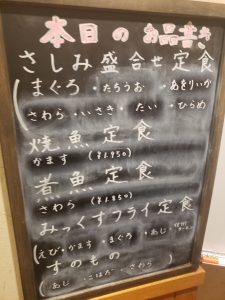 本日のお品書き
さしみ盛合せ定食
(まぐろ・たちうお・あおりいか
さわら・いさき・たい・ひらめ
焼魚定食
かます (¥1,950)
煮魚定食
さわら (¥1,850)
みっくすフライ定食
(えび・かます・まぐろ・あじ・
すのもの
(あじ・こはだ・さわら)